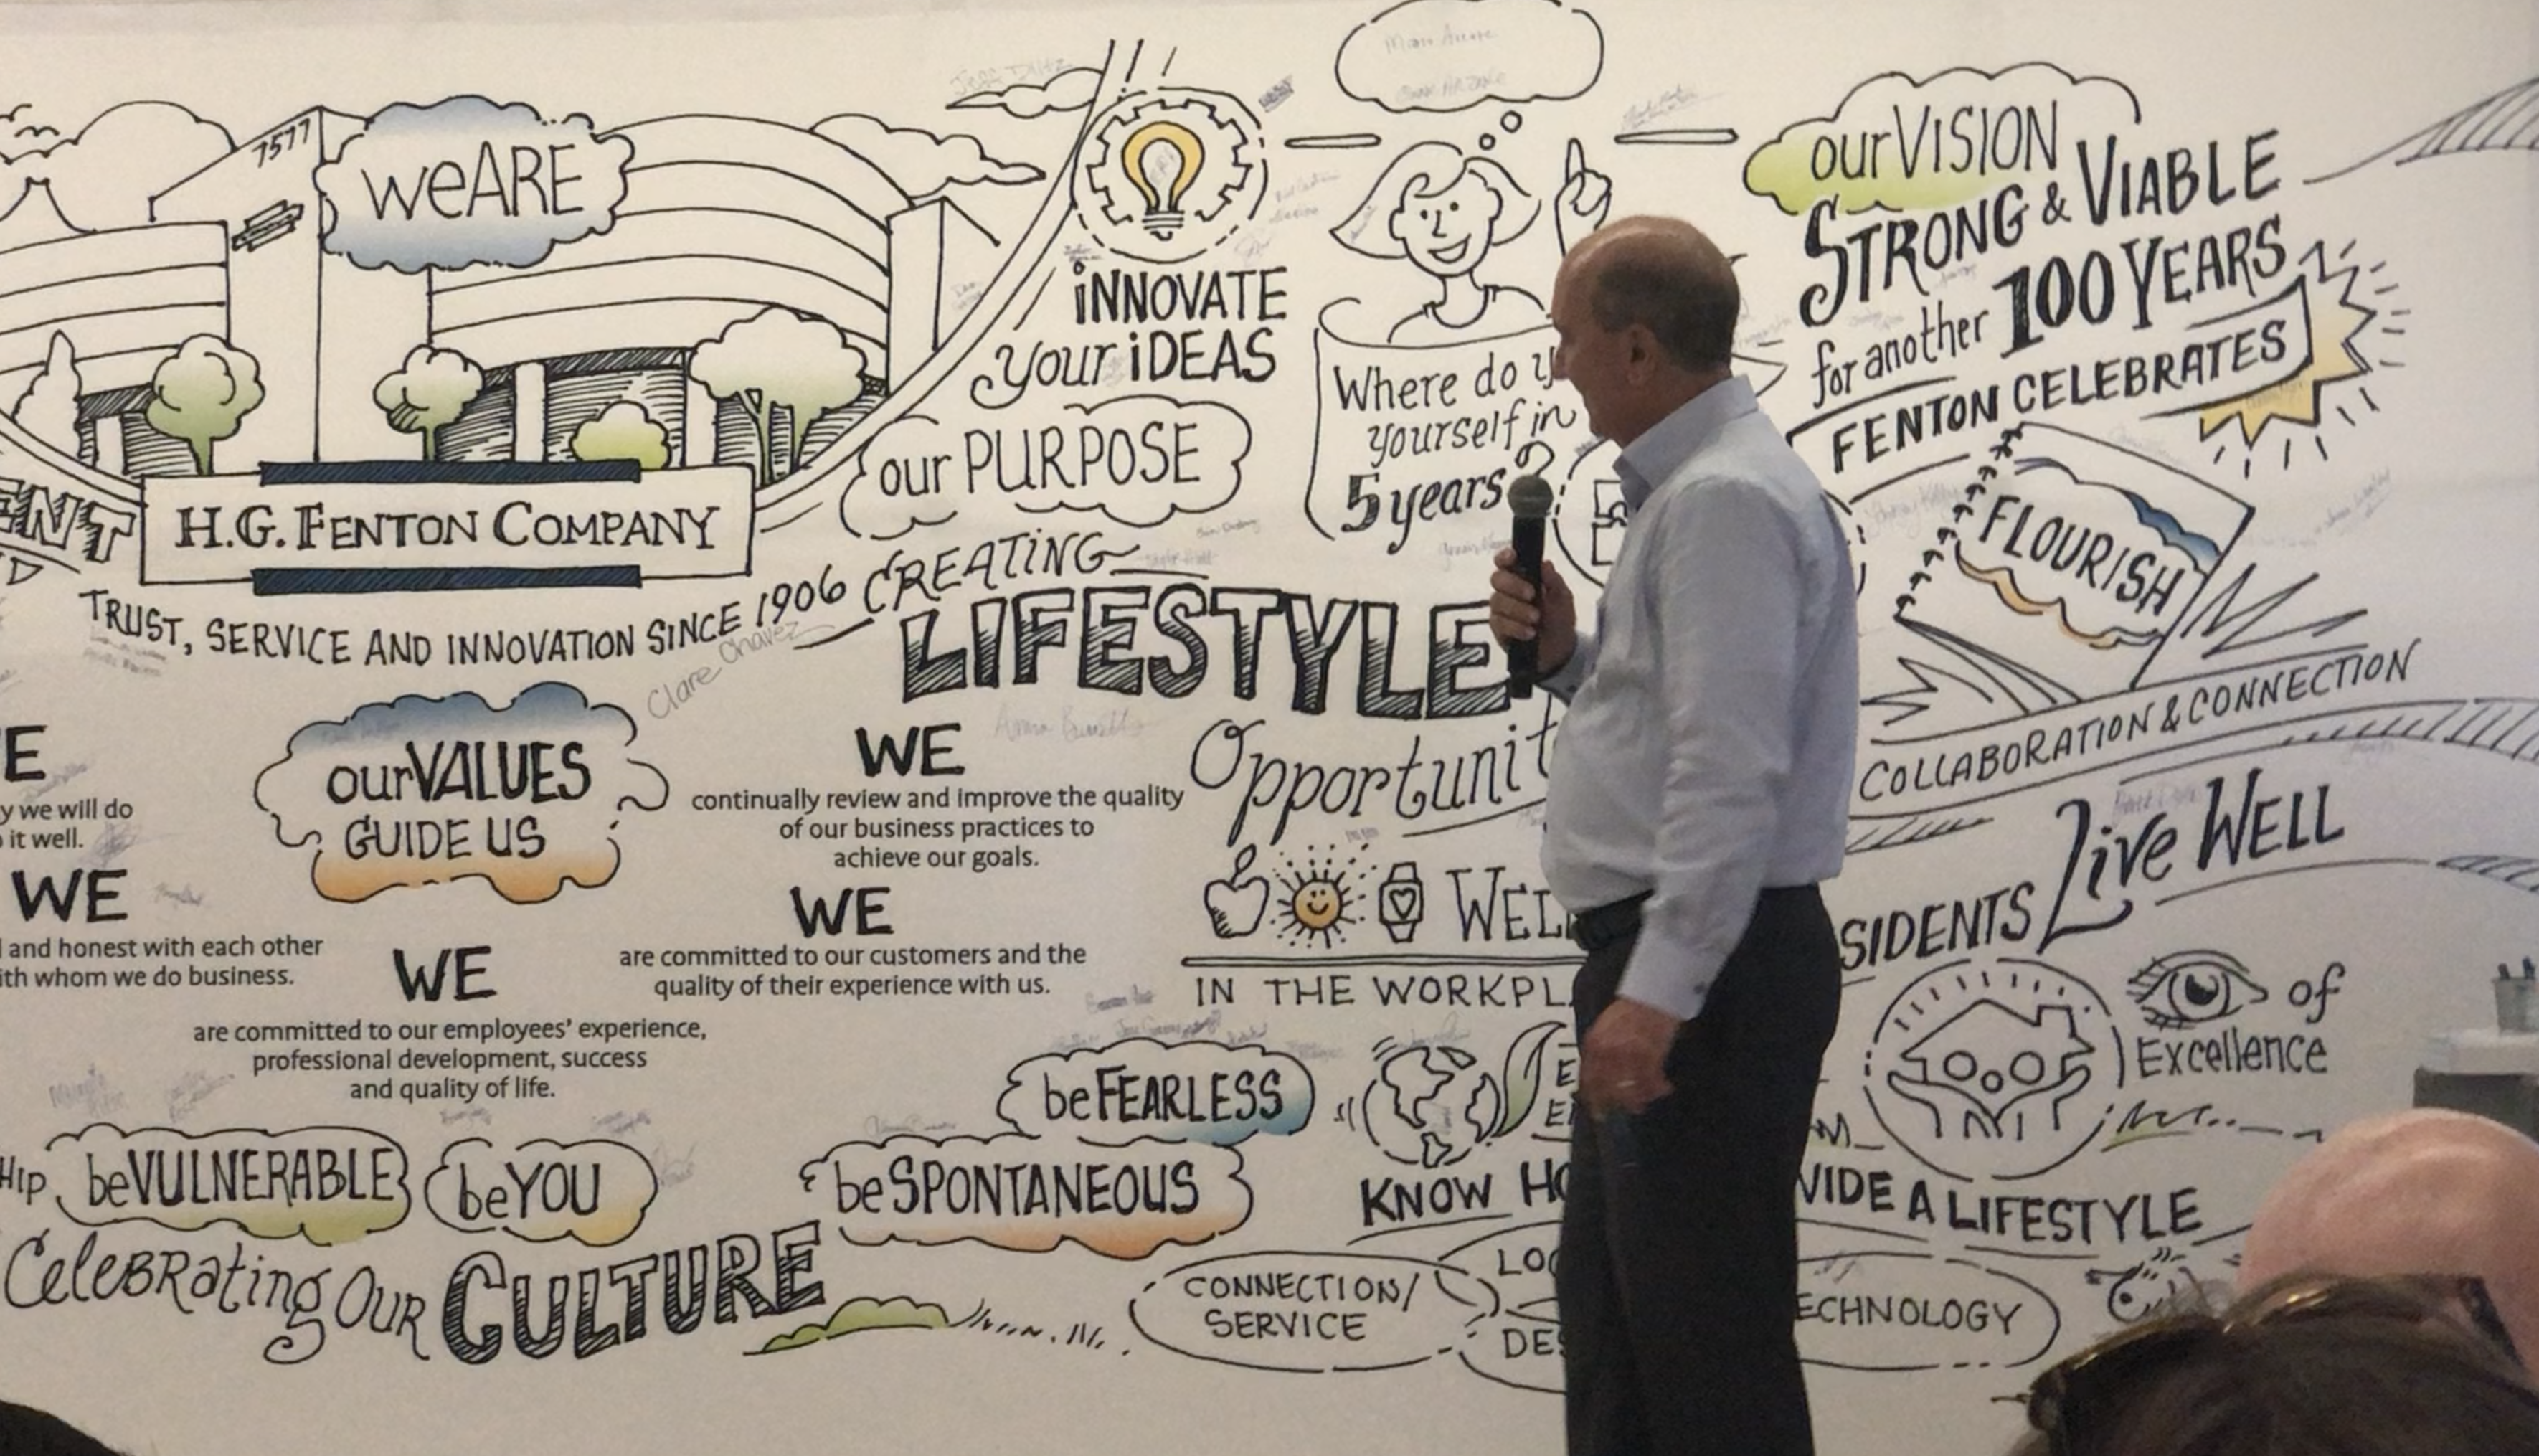 7577
weARE
H.G. FENTON COMPANY
ENT
TRUST, SERVICE AND INNOVATION SINCE 1906
iNNOVATE
your iDEAS
our PURPOSE
CREATING
LIFESTYLE
Opportunit
Where do y
yourself in
5 years?
ourVISION
STRONG & VIABLE
for another 100 YEARS
FENTON CELEBRATES
FLOURISH
COLLABORATION & CONNECTION
Clare Chavez
E
y we will do
it well.
WE
and honest with each other
ith whom we do business.
ourVALUES
GUIDE US
WE
are committed to our employees' experience,
professional development, success
and quality of life.
WE
continually review and improve the quality
of our business practices to
achieve our goals.
WE
are committed to our customers and the
quality of their experience with us.
WEL
IN THE WORKPL
SIDENTS Live WELL
of
Excellence
HIP
beVULNERABLE
beYOU
beFEARLESS
beSPONTANEOUS
CeleBRating OUR CULTURE
E
E
KNOW HO
VIDE A LIFESTYLE
CONNECTION/
SERVICE
LOC
DES
ECHNOLOGY